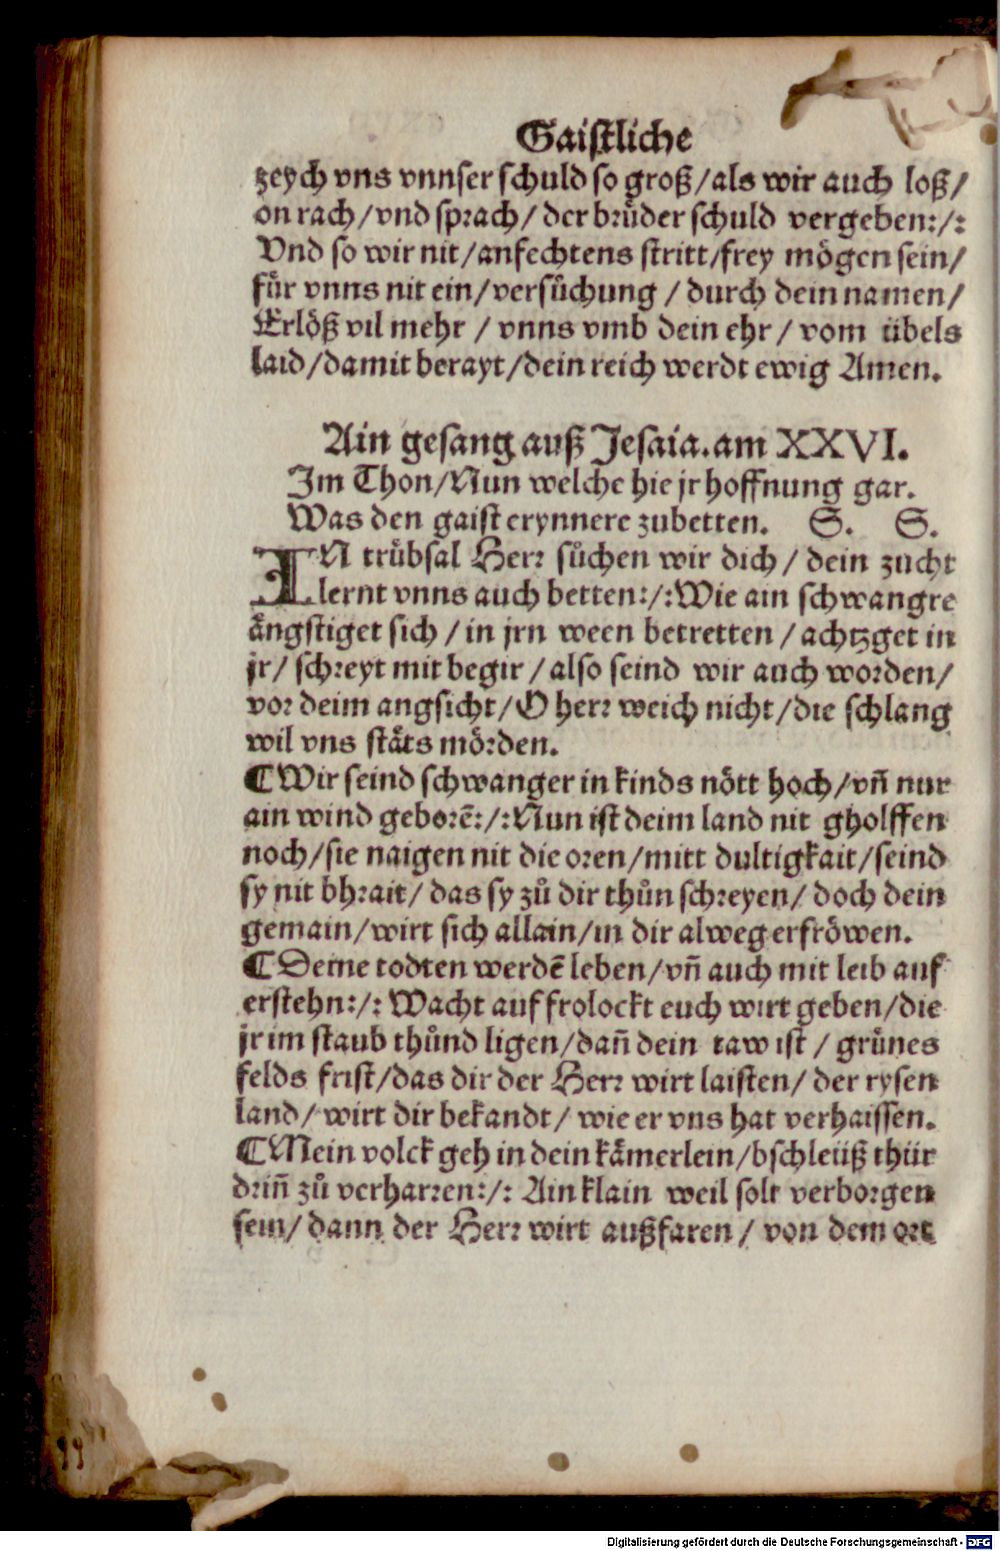 Gaiſtliche
zeych vns vnnser schuld so groß/als wir auch loß/
on rach/vnd sprach/ der bruͤder schuld vergeben:/:
Vnd so wir nit/anfechtens stritt/frey mögen sein/
fuͤr vnns nit ein/versuͤchung / durch dein namen/
Erlöß vil mehr / vnns vmb dein ehr / vom übels
laid/damit berayt/dein reich werdt ewig Amen.
Ain gesang auß Jesaia.am XXVI.
Im Thon/Nun welche hie jr hoffnung gar.
Was den gaist erynnere zubetten. S. S.
IN truͤbsal Herr suͤchen wir dich / dein zucht
lernt vnns auch betten:/:Wie ain schwangre
ängstiget sich / in jrn ween betretten / achtzget in
jr/ schreyt mit begir / also seind wir auch worden/
vor deim angsicht/O herr weich nicht/die schlang
wil vns stäts mörden.
¶Wir seind schwanger in kinds nött hoch/vñ nur
ain wind geborē:/:Nun ist deim land nit gholffen
noch/sie naigen nit die oren/mitt dultigkait/seind
sy nit bhrait/ das sy zuͦ dir thuͦn schreyen/ doch dein
gemain/wirt sich allain/in dir alweg erfröwen.
¶Deine todten werdē leben/vñ auch mit leib auf
erstehn:/: Wacht auf frolockt euch wirt geben/die
jr im staub thuͦnd ligen/dañ dein taw ist / gruͤnes
felds frist/das dir der Herr wirt laisten/ der rysen
land/ wirt dir bekandt/ wie er vns hat verhaissen.
¶Mein volck geh in dein kämerlein/bschleüß thür
driñ zuͦ verharren:/: Ain klain weil solt verborgen
sein/ dann der Herr wirt außfaren / von dem ort
Digitalisierung gefördert durch die Deutsche Forschungsgemeinschaft - DFG